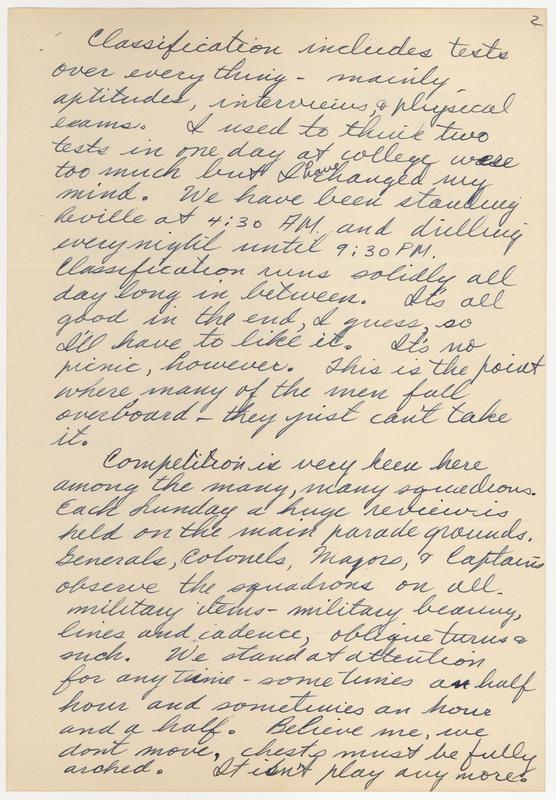 2
Classification includes tests
over everything - mainly
aptitudes, interviews, & physical
exams. I used to think two
tests in one day at college were
too much but I have changed my
mind. We have been standing
Reville at 4:30 AM. and drilling
every night until 9:30 PM.
Classification runs solidly all
day long in between. It's all
good in the end, I guess, so
I'll have to like it. It's no
picnic, however. This is the point
where many of the men fall
overboard - they just can't take
it.
Competition is very keen here
among the many, many squadrons.
Each Sunday a huge review is
held on the main parade grounds.
Generals, Colonels, Majors, & Captains
observe the squadrons on all
military items - military bearing,
lines and cadence, oblique turns &
such. We stand at attention
for any time - sometimes an half
hour and sometimes an hour
and a half. Believe me, we
don't move, chests must be fully
arched. It isn't play any more.